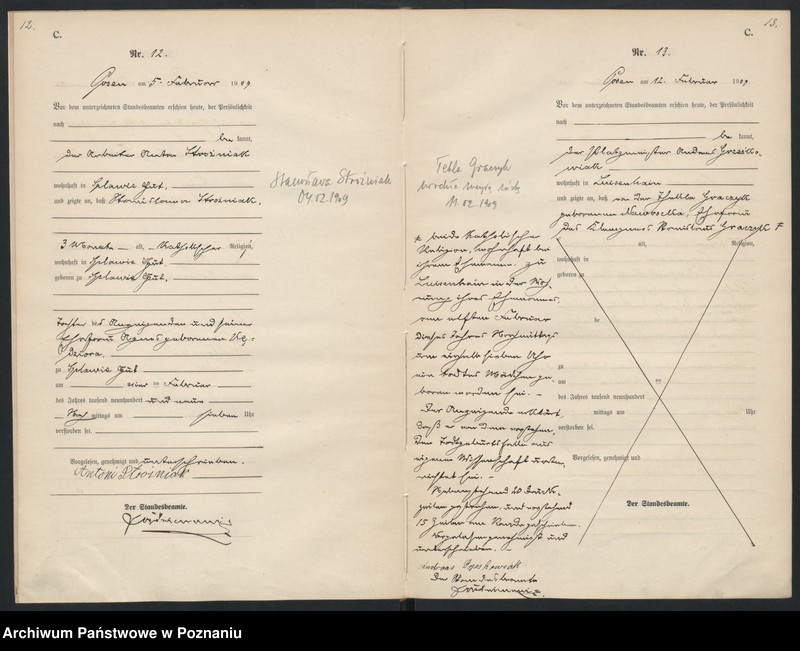 12.
C.
Nr. 12.
Posen am 5. Februar 1909
Vor dem unterzeichneten Standesbeamten erschien heute, der Persönlichkeit
nach
be kannt,
der Arbeiter Anton Stroiniak
wohnhaft in Glowie Gut,
und zeigte an, daß Stanislawa Stroiniak,
3 Monate alt, Katholischer Religion,
wohnhaft in Glowie Gut
geboren zu Glowie Gut,
Tochter des Anzeigenden und seiner
Ehefrau Agnes geborenen
zu Glowie Gut
am vier ten Februar
des Jahres tausend neunhundert und neun
Vor mittags um sieben Uhr
verstorben sei.
Vorgelesen, genehmigt und unterschrieben.
Antoni Stroiniak
Der Standesbeamte.
Stanisława Stróżniak
04.02.1909
13.
C.
Nr. 13.
Posen am 12. Februar 1909
Vor dem unterzeichneten Standesbeamten erschien heute, der Persönlichkeit
nach
be kannt,
der Platzmeister Andreas
wohnhaft in Luisenhain
und zeigte an, daß von der Thekla Graczyk
geborenen Ehefrau
des Stanislaus Graczyk
alt, Religion,
wohnhaft in
geboren zu
be
zu
am ten
des Jahres tausend neunhundert
mittags um Uhr
verstorben sei.
Vorgelesen, genehmigt und
Der Standesbeamte.
Tekla Graczyk
11.02.1909
beide Katholischer
Religion, wohnhaft bei
ihrem Ehemanne zu
Luisenhain in der Woh-
nung ihres Ehemannes,
am elften Februar
dieses Jahres Nachmittags
um einhalb sieben Uhr
ein todtes Mädchen ge-
boren worden sei. –
Der Anzeigende erklärt,
daß er von dem vorstehen-
den Todtgeburtsfalle aus
eigener Wissenschaft unter-
richtet sei. –
Nebenstehend 20 Druck-
zeilen gestrichen, und vorstehend
15 Zeilen am Rande geschrieben.
Vorgelesen genehmigt und
unterschrieben. –
Der Standesbeamte
Archiwum Państwowe w Poznaniu